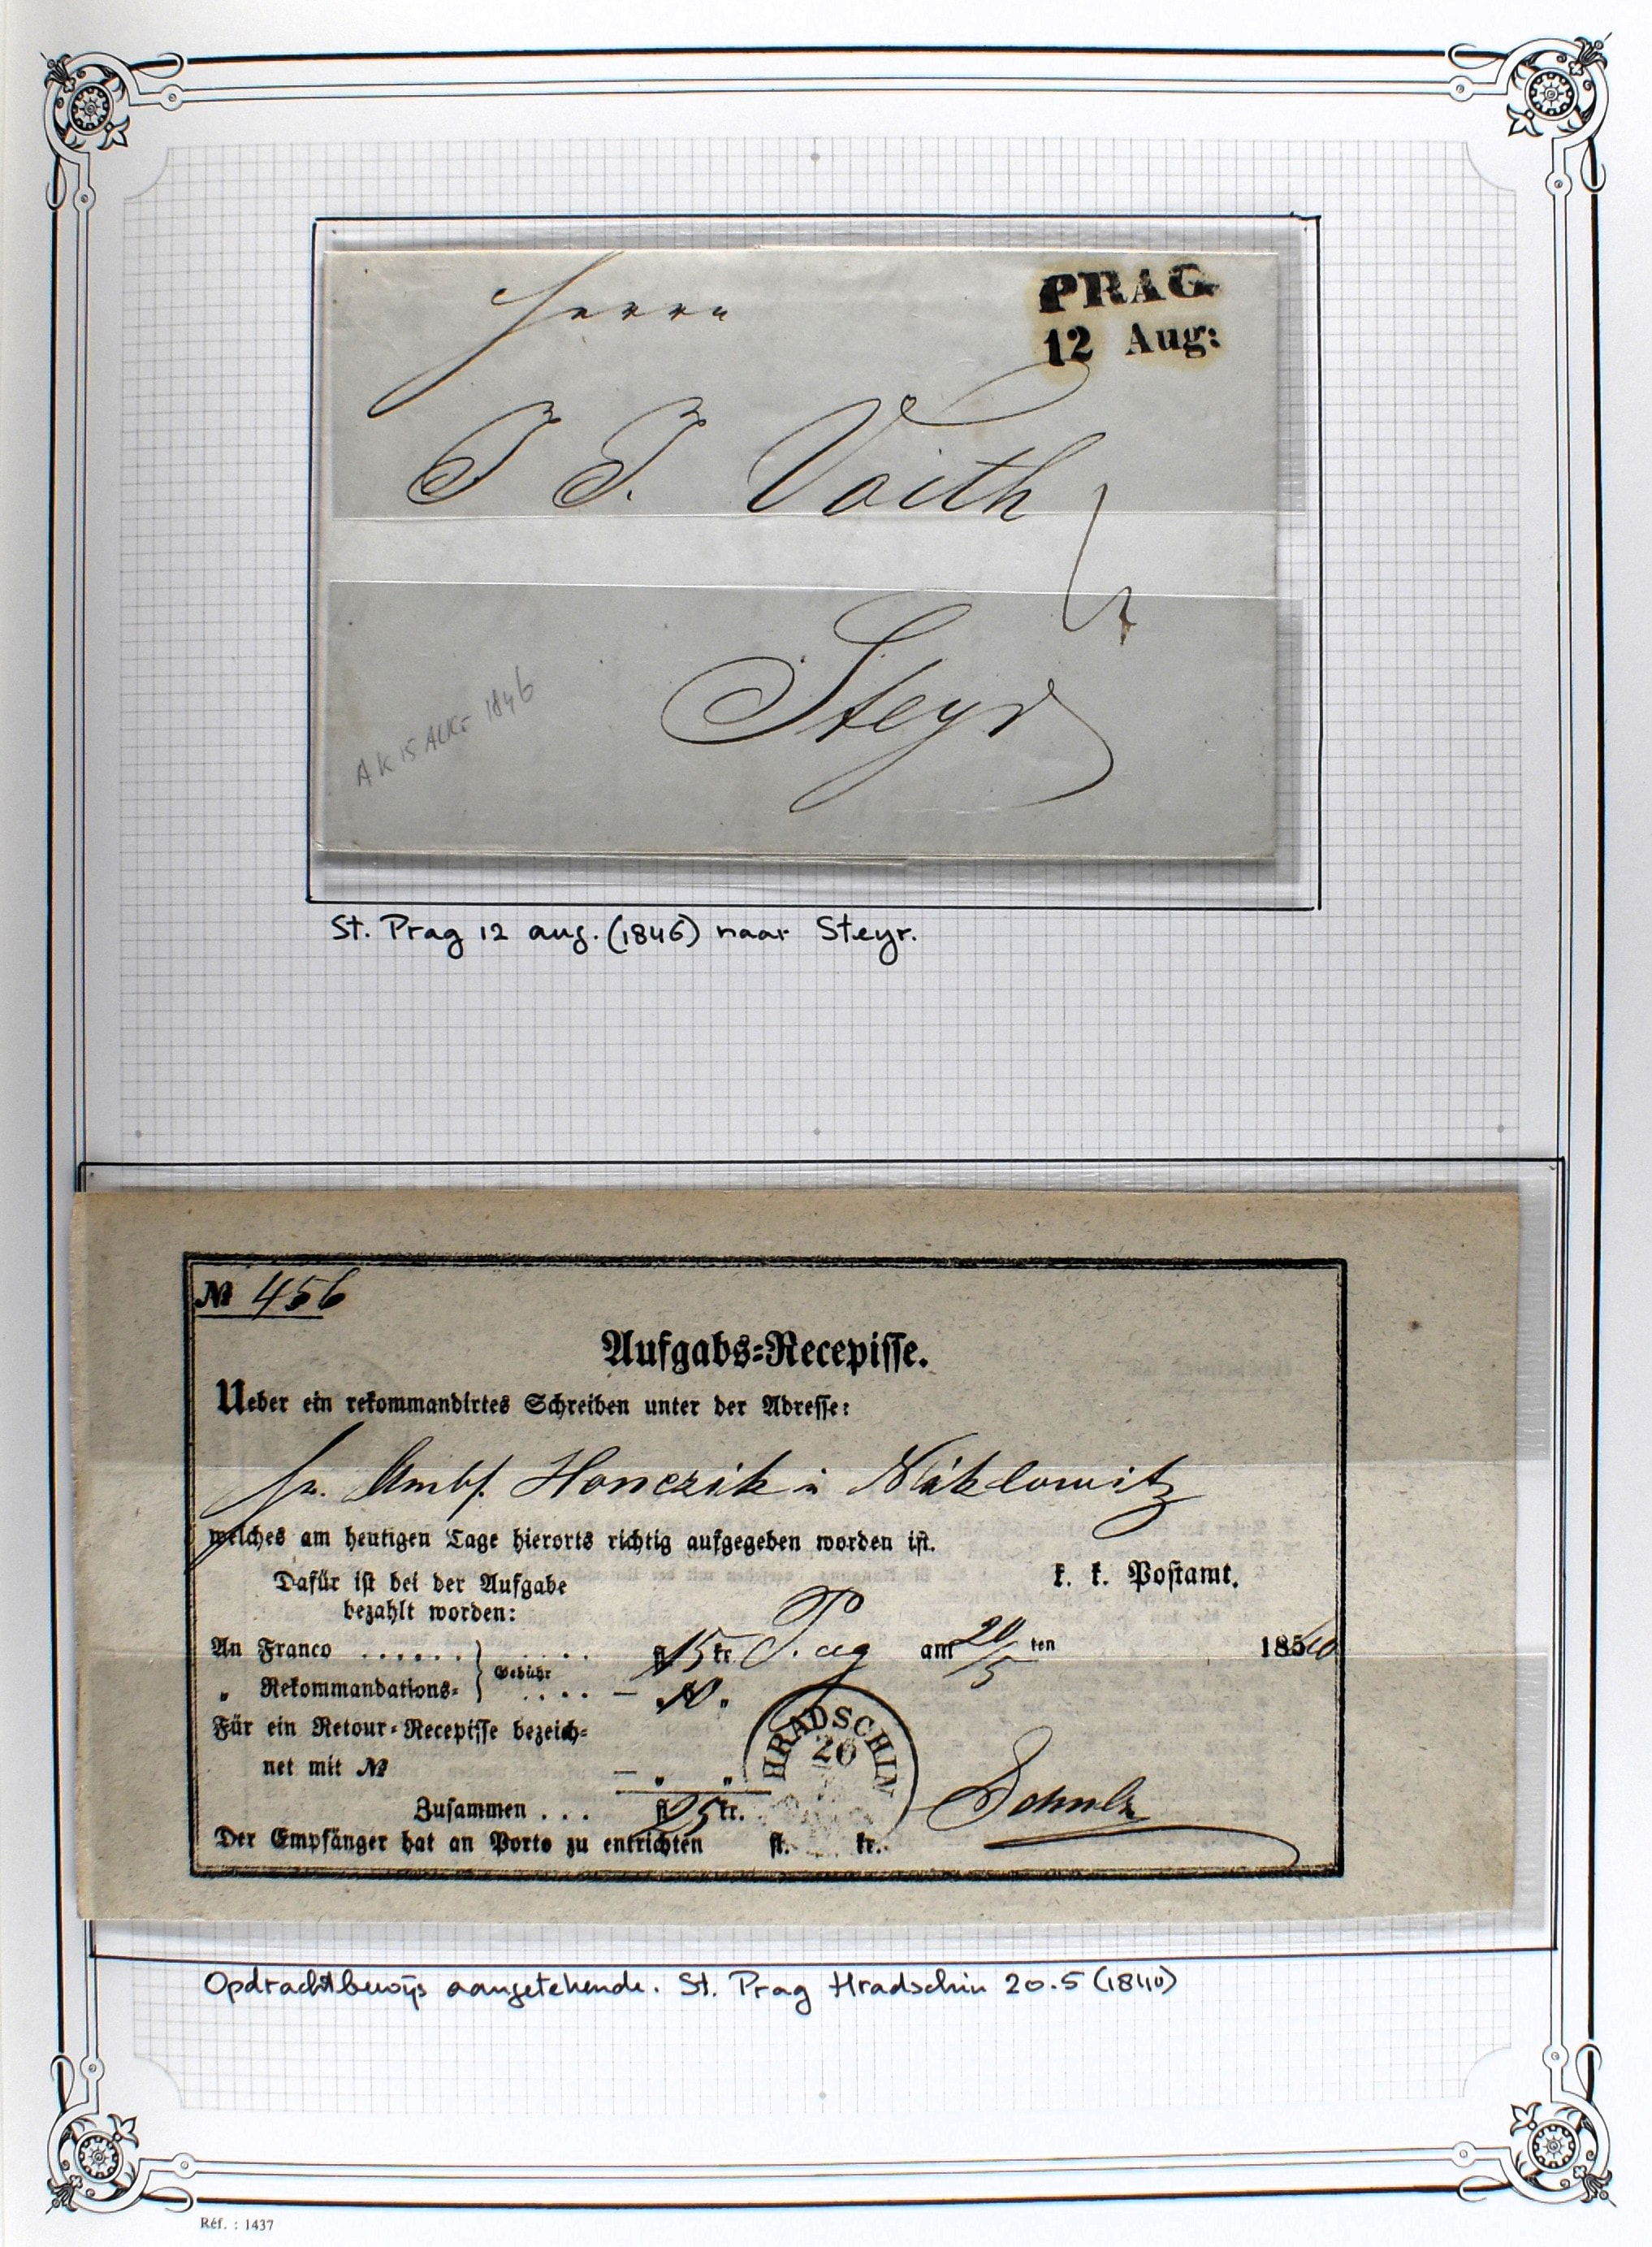 PRAG
12 Aug:
Herrn
J. J. Voith
Steyr
AK 15 1846
St. Prag 12 aug. (1846) naar Steyr.
№ 456
Aufgabs-Recepisse.
Ueber ein rekommandirtes Schreiben unter der Adresse:
Honczik Niklowitz
welches am heutigen Tage hierorts richtig aufgegeben worden ist.
Dafür ist bei der Aufgabe
bezahlt worden:
k. k. Postamt.
An Franco ...... Gebühr ..... fl. 15 kr. Prag am 20/5 ten 185
„ Rekommandations- .... — „ 10 „
Für ein Retour-Recepisse bezeich-
net mit № — „ „
HRADSCHIN
20
Zusammen ... fl. 25 kr.
Schulz
Der Empfänger hat an Porto zu entrichten fl. kr.
Opdrachtbewijs aangetekende. St. Prag Hradschin 20.5 (1840)
Réf. : 1437